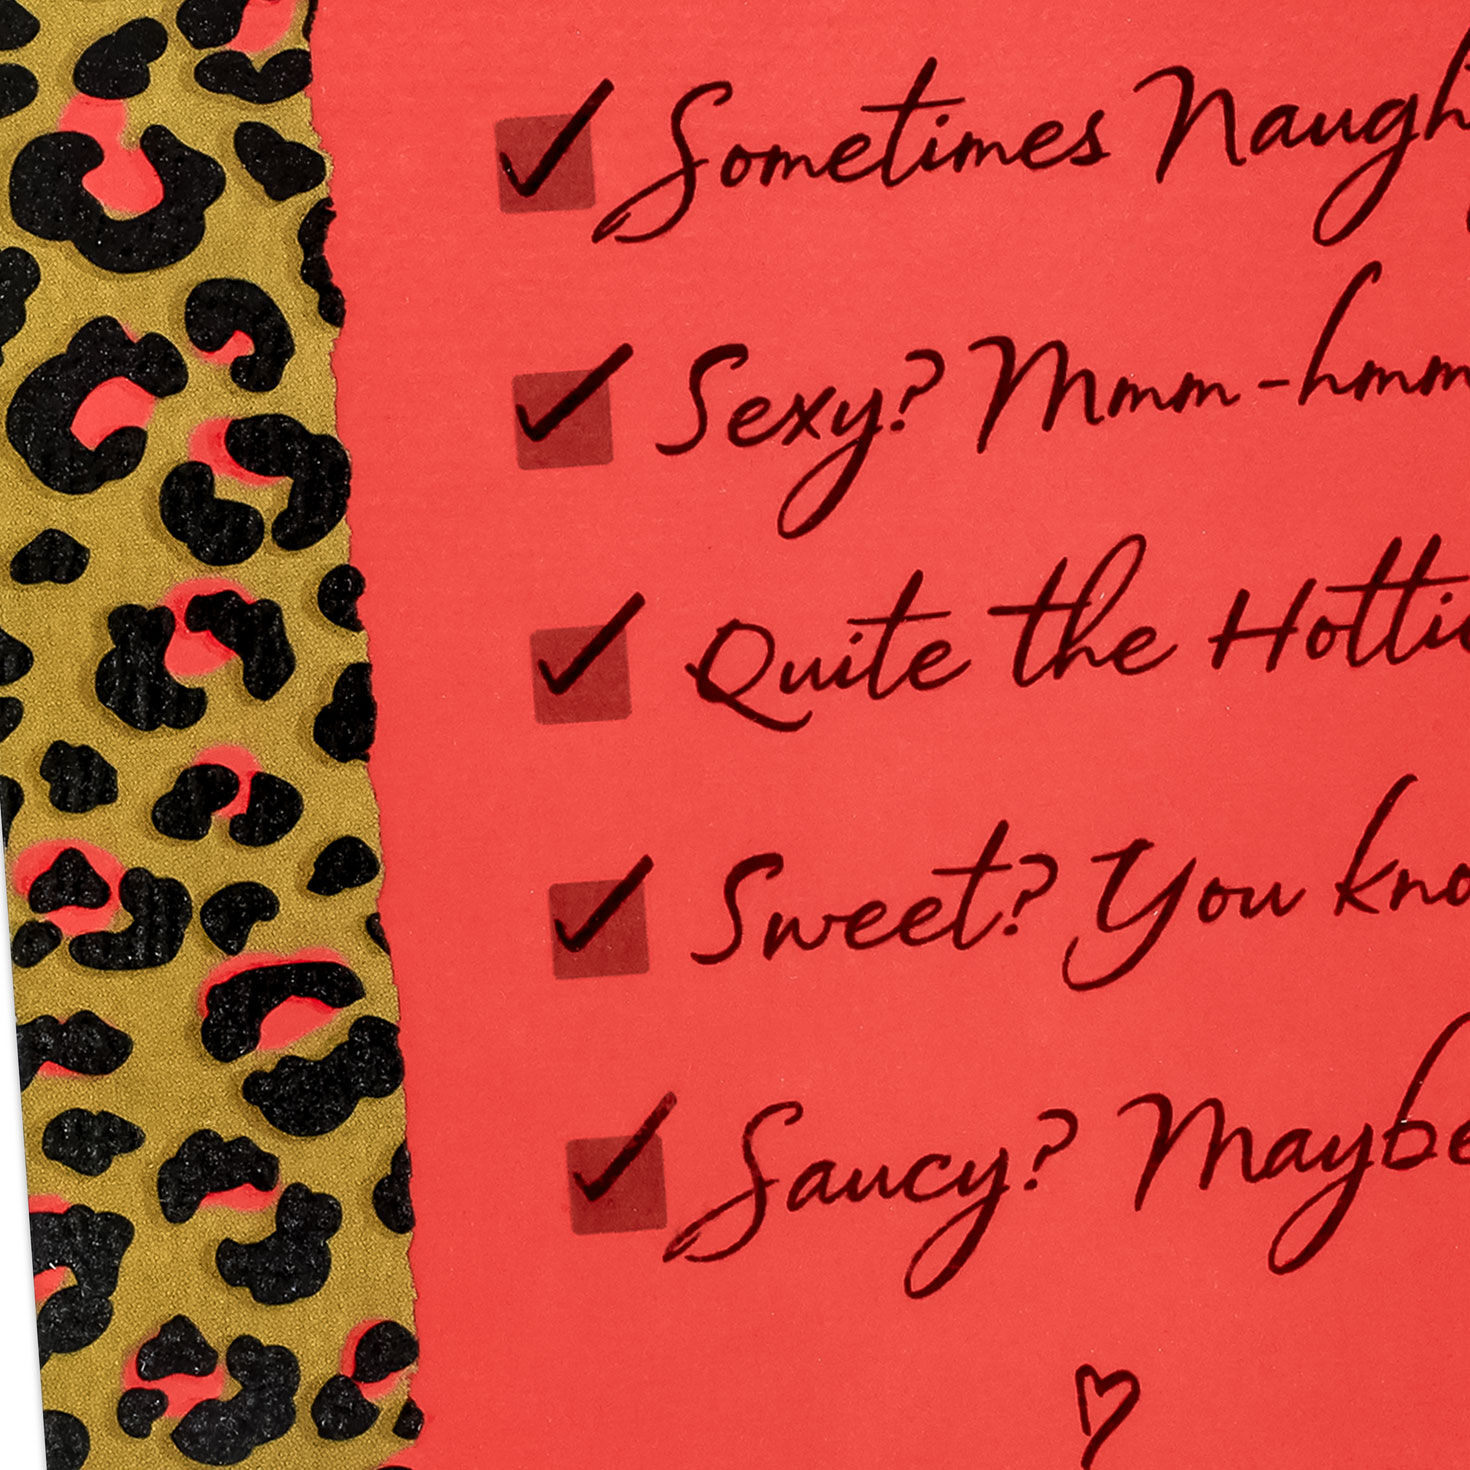 Sometimes Naugh
Sexy? Mmm-hmmm
Quite the Hottie
Sweet? You kno
Saucy? Maybe